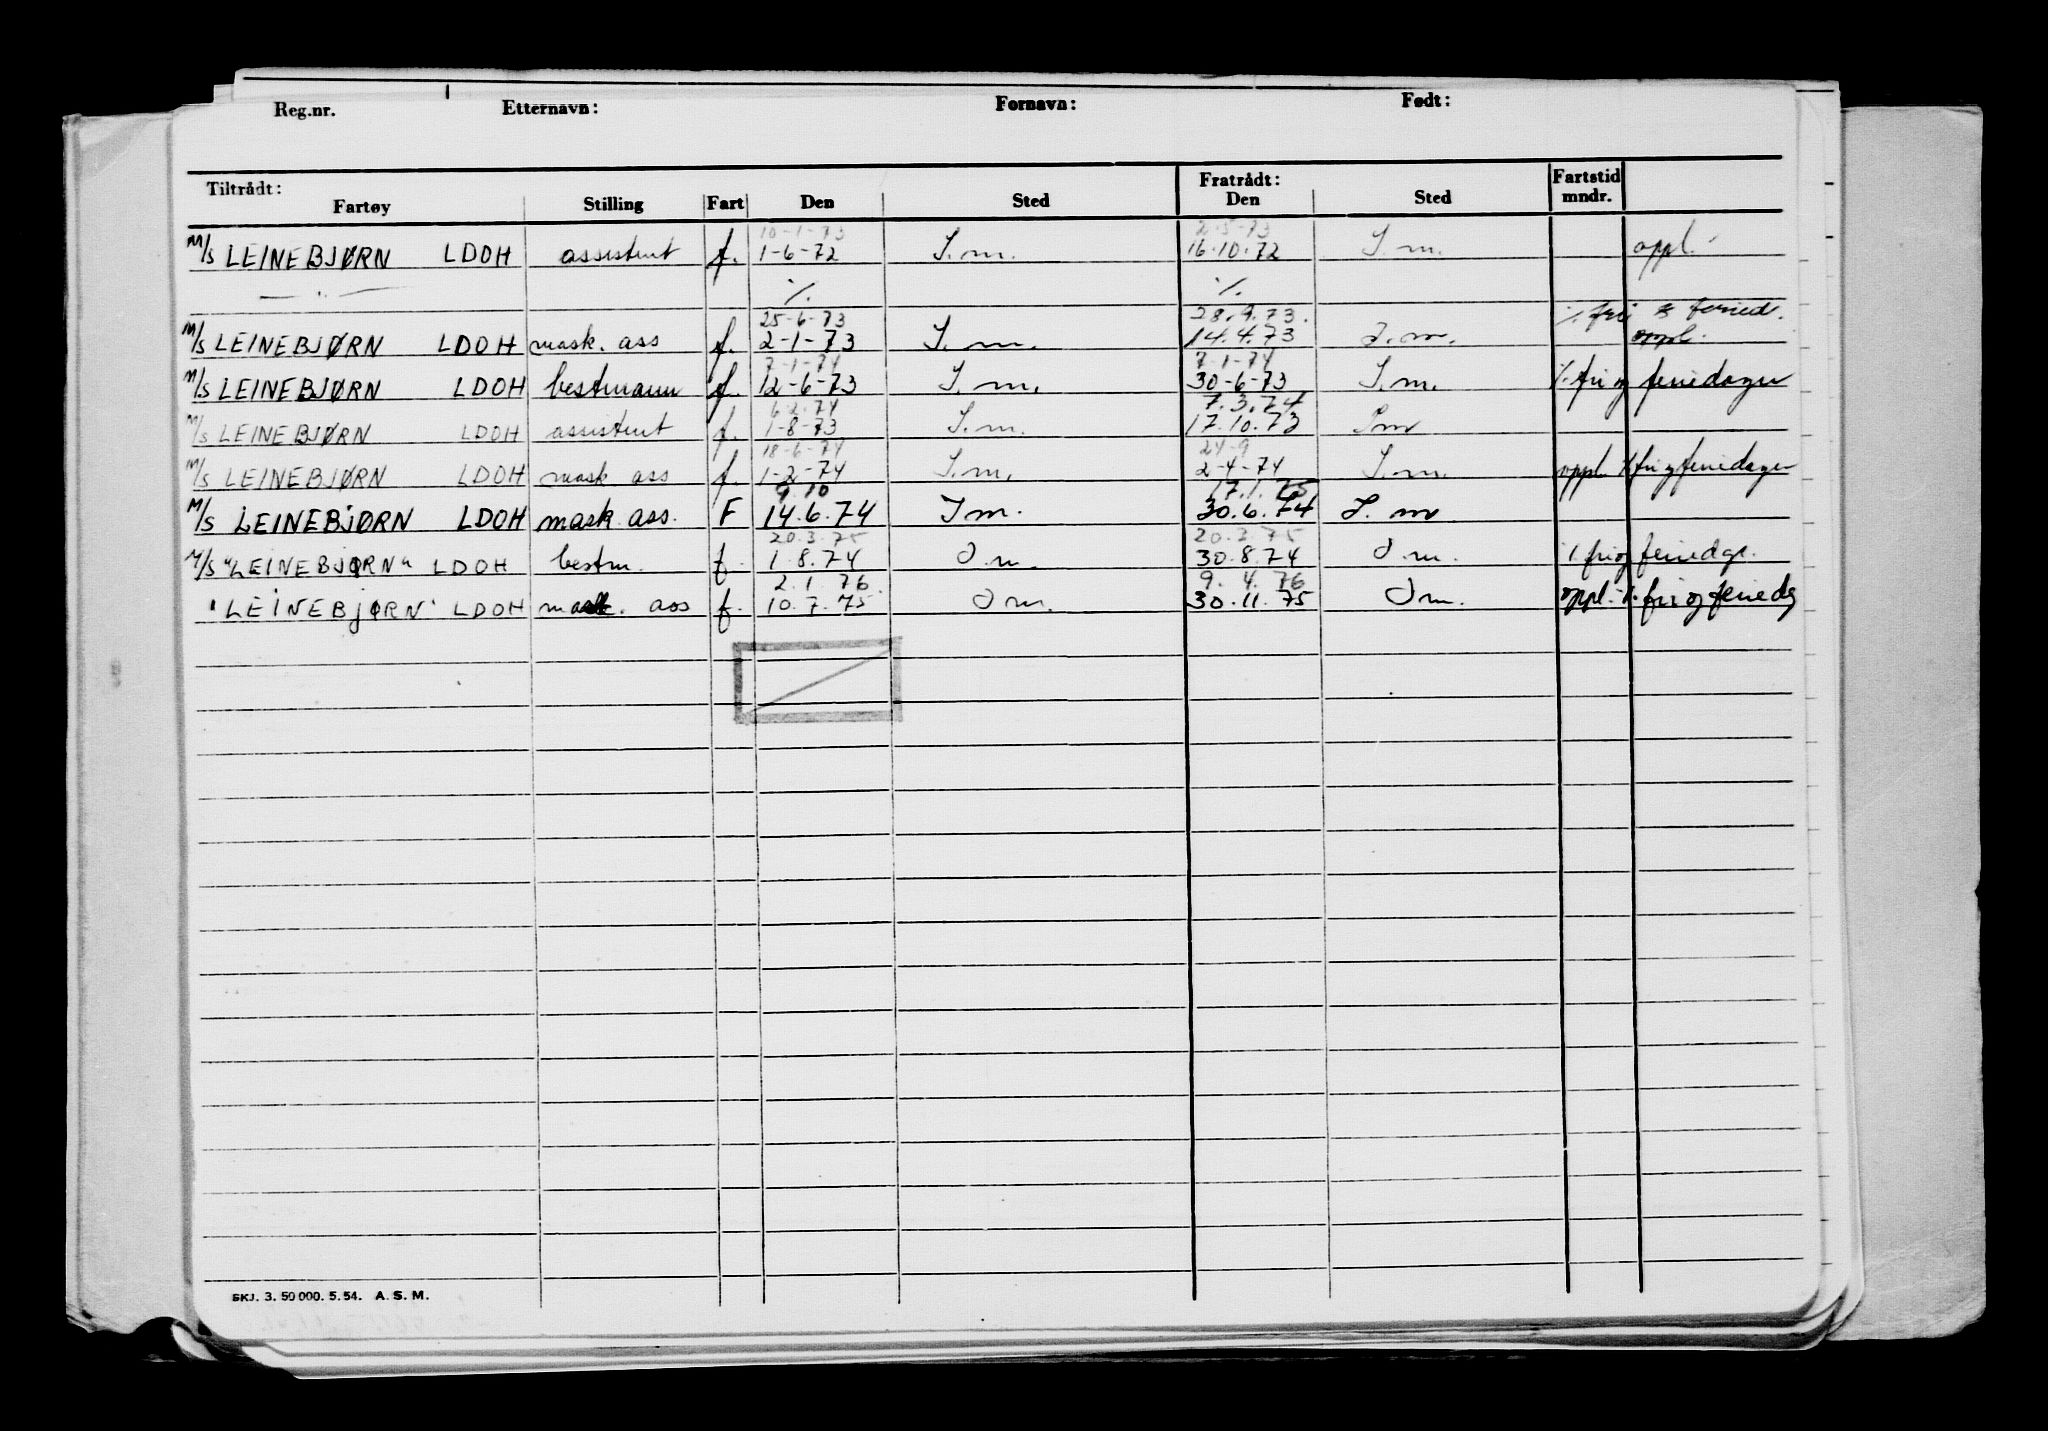 Reg.nr. Etternavn: Fornavn: Født:
Tiltrådt: Fratrådt: Fartstid
Fartøy Stilling Fart Den Sted Den Sted mndr.
10-1-73 2-5-73
M/S LEINEBJØRN LDOH assistent f. 1-6-72 S.m. 16.10.72 S.m. oppl.
— " — ٪ ٪
25-6-73 28.9.73. ٪ fri & feried.
M/S LEINEBJØRN LDOH mask. ass f. 2-1-73 S.m. 14.4.73 S.m. oppl.
7-1-74 7-1-74
M/S LEINEBJØRN LDOH bestmann f. 12-6-73 S.m. 30-6-73 S.m. ٪ fri og feriedager
6.2.74 7.3.74
M/S LEINEBJØRN LDOH assistent f. 1-8-73 S.m. 17.10.73 Sm
18-6-74 24-9
M/S LEINEBJØRN LDOH mask ass f. 1-2-74 S.m. 2-4-74 S.m. oppl ٪ fri og feriedager
9.10 17.1.75
M/S LEINEBJØRN LDOH mask. ass. F 14.6.74 Sm. 30.6.74 S.m
20.3.75 20.3.75
M/S "LEINEBJØRN" LDOH bestm. f. 1.8.74 S.m. 30.8.74 S.m. ٪ fri og feriedgr.
2.1.76. 9.4.76
"LEINEBJØRN" LDOH mask. ass f. 10.7.75 Sm. 30.11.75 Sm. oppl. ٪ fri og feriedg
SKJ. 3. 50 000. 5. 54. A. S. M.